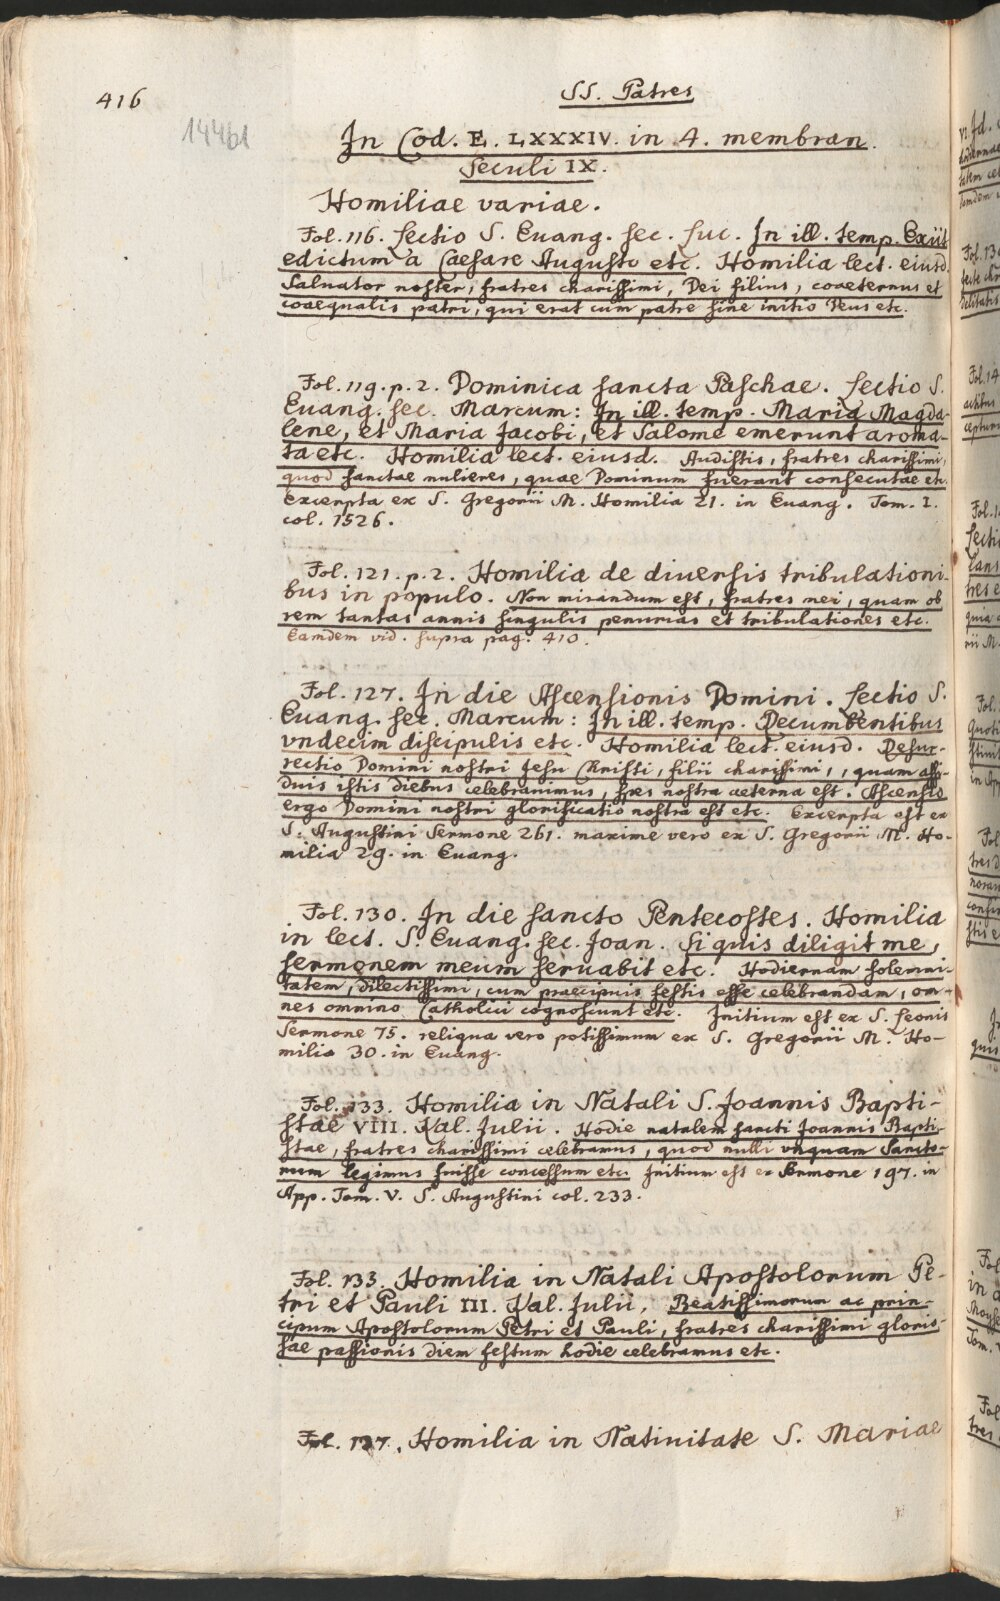 416
SS. Patres
14461
In Cod. E. LXXXIV. in 4. membran.
Seculi IX.
Homiliae variae.
Fol. 116. Lectio S. Euang. sec. Luc. In ill. temp. Exiit
edictum a Caesare Augusto etc. Homilia lect. eiusd.
Saluator noster, fratres charissimi, Dei filius, coaeternus et
coaequalis patri, qui erat cum patre sine initio Deus etc.
Fol. 119. p. 2. Dominica sancta Paschae. Lectio S.
Euang. sec. Marcum: In ill. temp. Maria Magda-
lene, et Maria Jacobi, et Salome emerunt aroma-
ta etc. Homilia lect. eiusd. Audistis, fratres charissimi,
quod sanctae mulieres, quae Dominum fuerant consecutae etc.
Excerpta ex S. Gregorii M. Homilia 21. in Euang. Tom. I.
col. 1526.
Fol. 121. p. 2. Homilia de diuersis tribulationi-
bus in populo. Non mirandum est, fratres mei, quam ob
rem tantas annis singulis penurias et tribulationes etc.
Eamdem vid. supra pag. 410.
Fol. 127. In die Ascensionis Domini. Lectio S.
Euang. sec. Marcum: In ill. temp. Recumbentibus
vndecim discipulis etc. Homilia lect. eiusd. Resur-
rectio Domini nostri Jesu Christi, filii charissimi, , quam assi-
duis istis diebus celebrauimus, spes nostra aeterna est. Ascensio
ergo Domini nostri glorificatio nostra est etc. Excerpta est ex
S. Augustini Sermone 261. maxime vero ex S. Gregorii M. Ho-
milia 29. in Euang.
Fol. 130. In die sancto Pentecostes. Homilia
in lect. S. Euang. sec. Joan. Si quis diligit me,
sermonem meum seruabit etc. Hodiernam solemni-
tatem, dilectissimi, cum praecipuis festis esse celebrandam, om-
nes omnino Catholici cognoscunt etc. Initium est ex S. Leonis
Sermone 75. reliqua vero potissimum ex S. Gregorii M. Ho-
milia 30. in Euang.
Fol. 133. Homilia in Natali S. Joannis Bapti-
stae VIII. Kal. Julii. Hodie natalem sancti Joannis Bapti-
stae, fratres charissimi celebramus, quod nulli vnquam Sancto-
rum legimus fuisse concessum etc. Initium est ex Sermone 197. in
App. Tom. V. S. Augustini col. 233.
Fol. 133. Homilia in Natali Apostolorum Pe-
tri et Pauli III. Kal. Julii, Beatissimorum ac prin-
cipum Apostolorum Petri et Pauli, fratres charissimi glorio-
sae passionis diem festum hodie celebramus etc.
Fol. 137. Homilia in Natiuitate S. Mariae